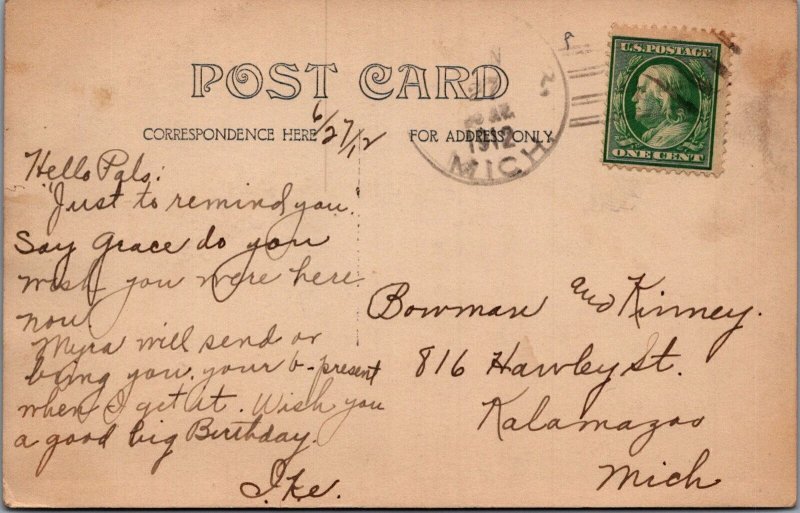 POST CARD
CORRESPONDENCE HERE
FOR ADDRESS ONLY
6/27/12
27
1912
MICH.
U.S. POSTAGE
ONE CENT
Hello Pals:
"Just to remind you."
Say Grace do you
wish you were here
now.
Myra will send or
bring you your b-present
when I get it. Wish you
a good big Birthday.
Ike.
Bowman and Kinney.
816 Hawley St.
Kalamazoo
Mich